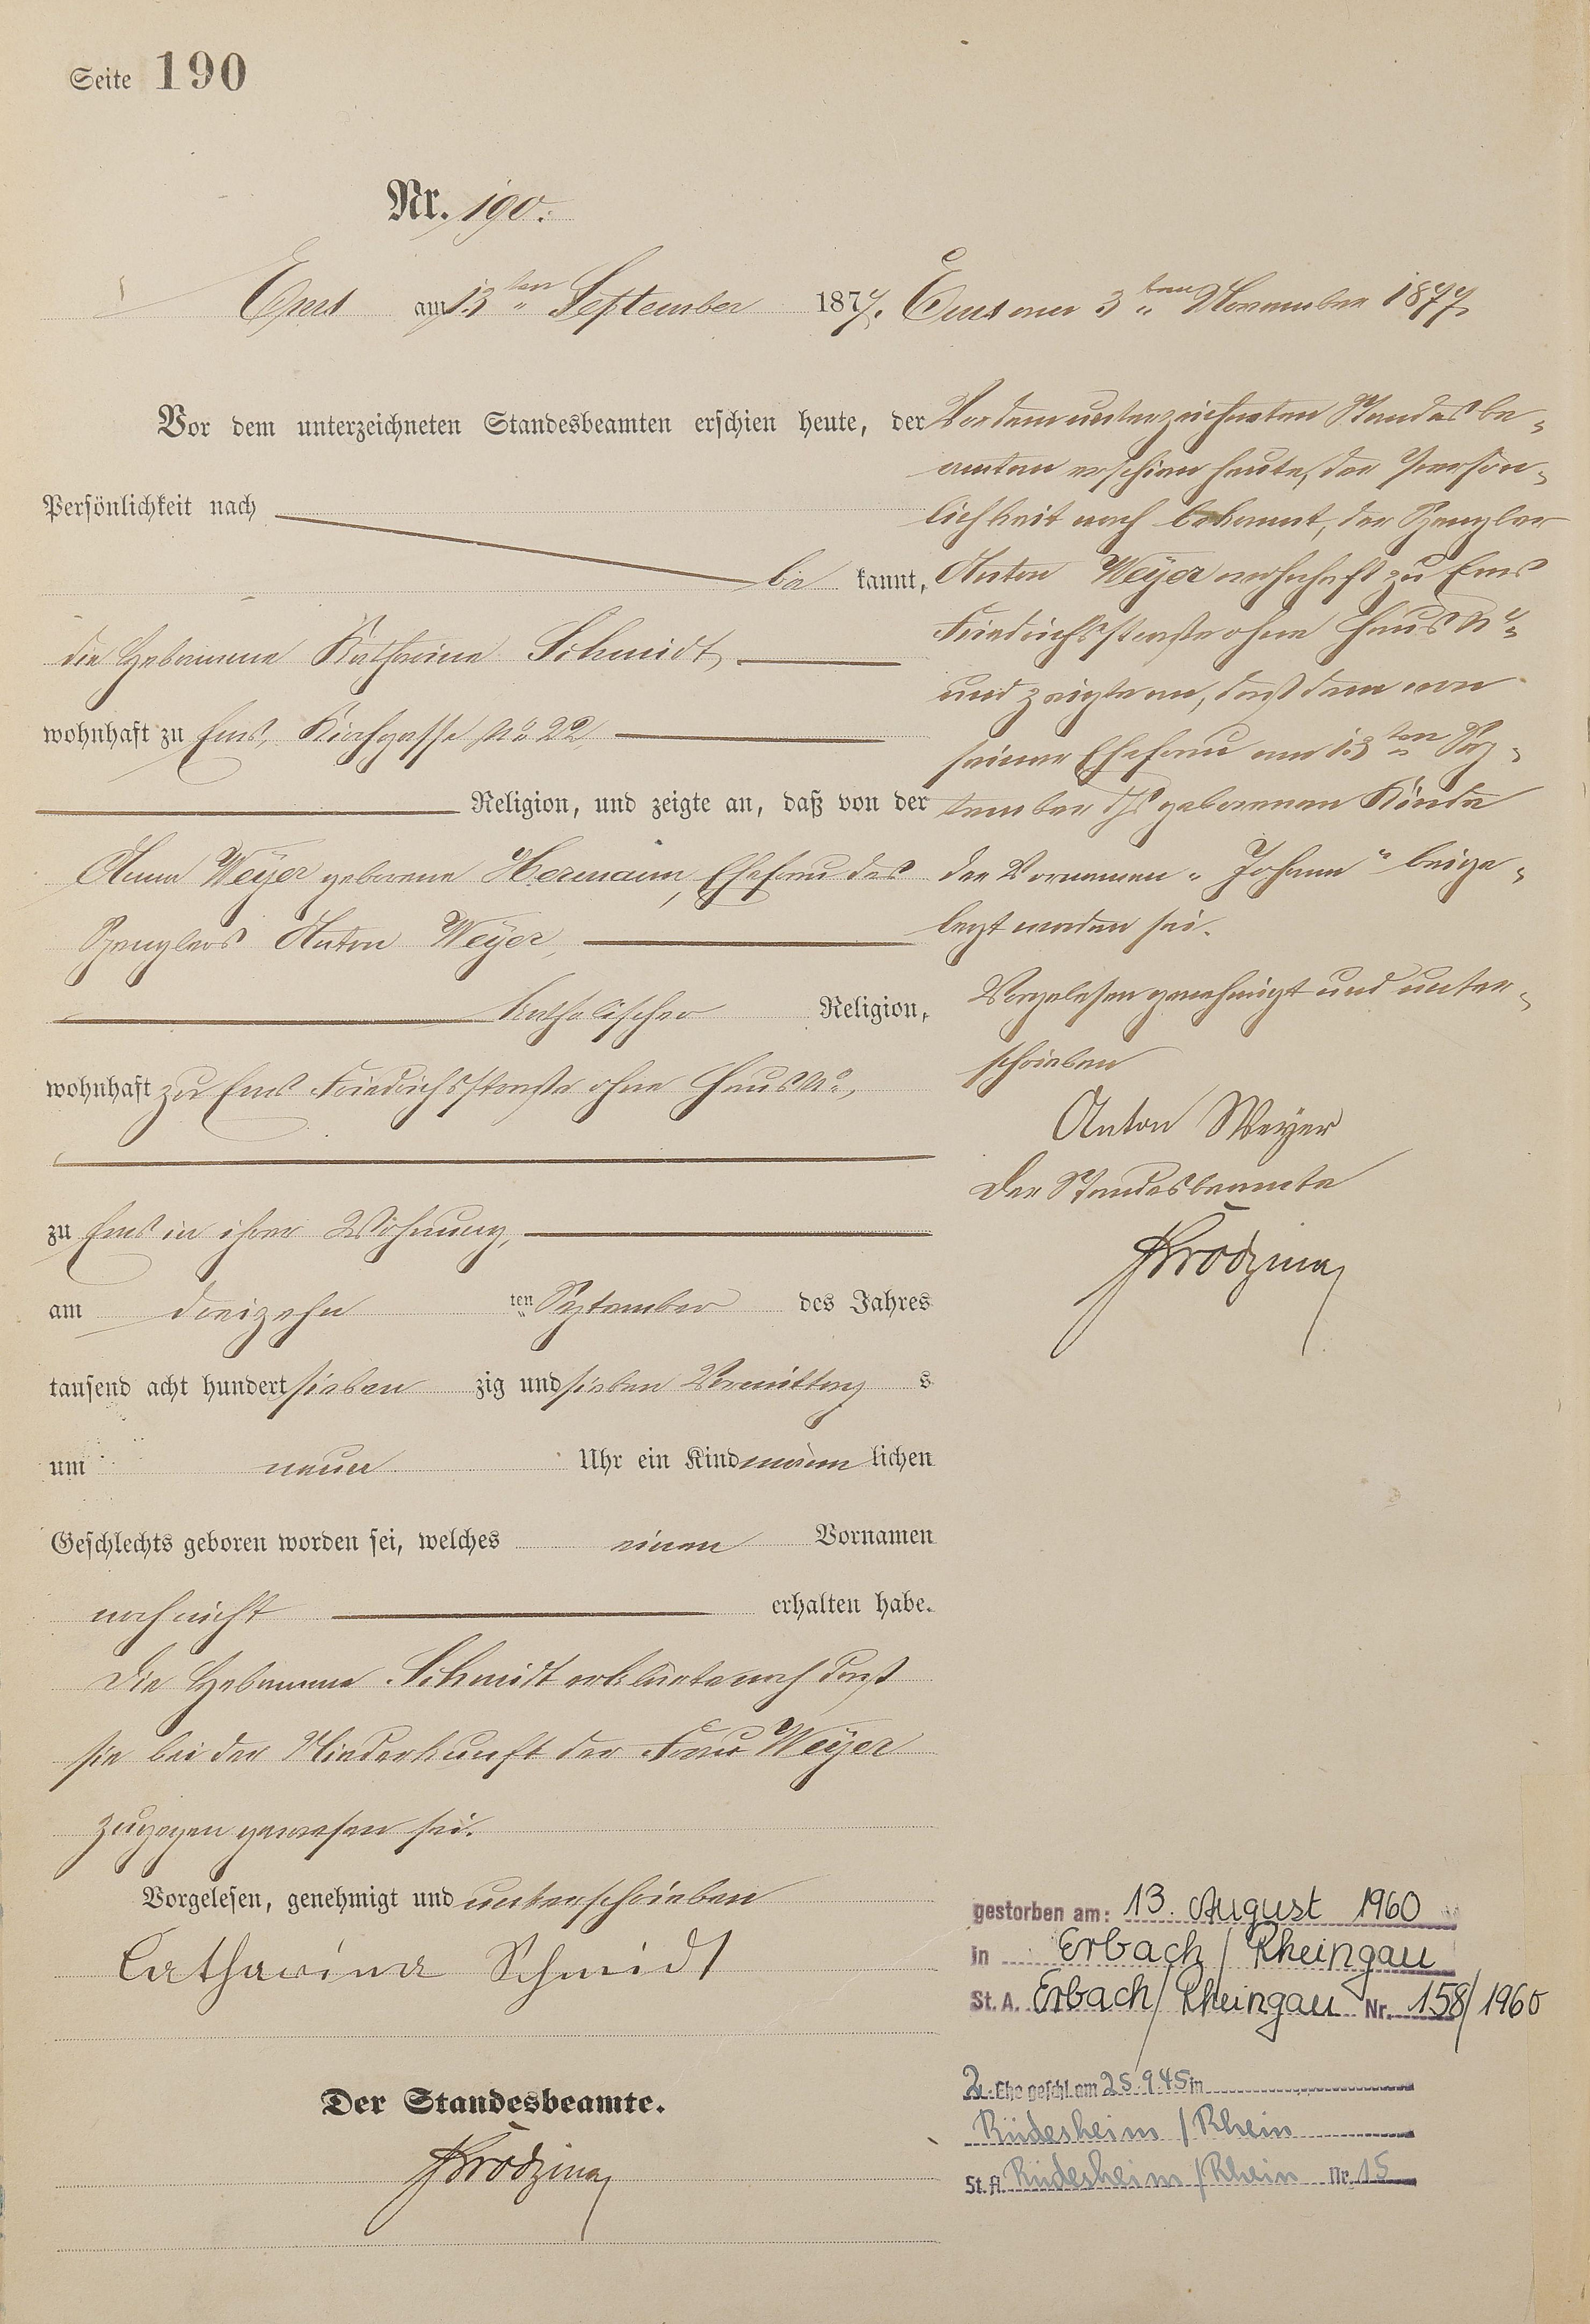 Seite 190
Nr. 190.
Ems am 13ten September 1877.
Vor dem unterzeichneten Standesbeamten erschien heute, der
Persönlichkeit nach
be kannt,
die Hebamme Katharina Schmidt,
wohnhaft zu Ems, Kirchgasse No 22,
Religion, und zeigte an, daß von der
Anna Weyer geborene Hermann, Ehefrau des
Spenglers Anton Weyer,
katholischer Religion,
wohnhaft zu Ems Friedrichsstraße ohne Haus No,
zu Ems in ihrer Wohnung,
am dreizehn ten September des Jahres
tausend acht hundert sieben zig und sieben Vormittag s
um neun Uhr ein Kind männ lichen
Geschlechts geboren worden sei, welches einen Vornamen
noch nicht erhalten habe.
Die Hebamme Schmidt erklärte noch daß
sie bei der Niederkunft der Frau Weyer
zugegen gewesen sei.
Vorgelesen, genehmigt und unterschrieben
Catharina Schmidt
Der Standesbeamte.
Ems am 3ten November 1877
Vor dem unterzeichneten Standesbe-
amten erschien heute, der Persön-
lichkeit nach bekannt, der Spengler
Anton Weyer wohnhaft zu Ems
Friedrichsstraße ohne Haus No
und zeigte an, daß dem von
seiner Ehefrau am 13ten Sep-
tember ds geborenen Kinde
der Vornamen "Johann" beige-
legt worden sei.
Vorgelesen genehmigt und unter-
schrieben
Anton Weyer
Der Standesbeamte
gestorben am: 13. August 1960
in Erbach / Rheingau
St. A. Erbach / Rheingau Nr. 158/1960
2. Ehe geschl. am 25.9.45 in
Rüdesheim / Rhein
St. A. Rüdesheim / Rhein Nr. 15